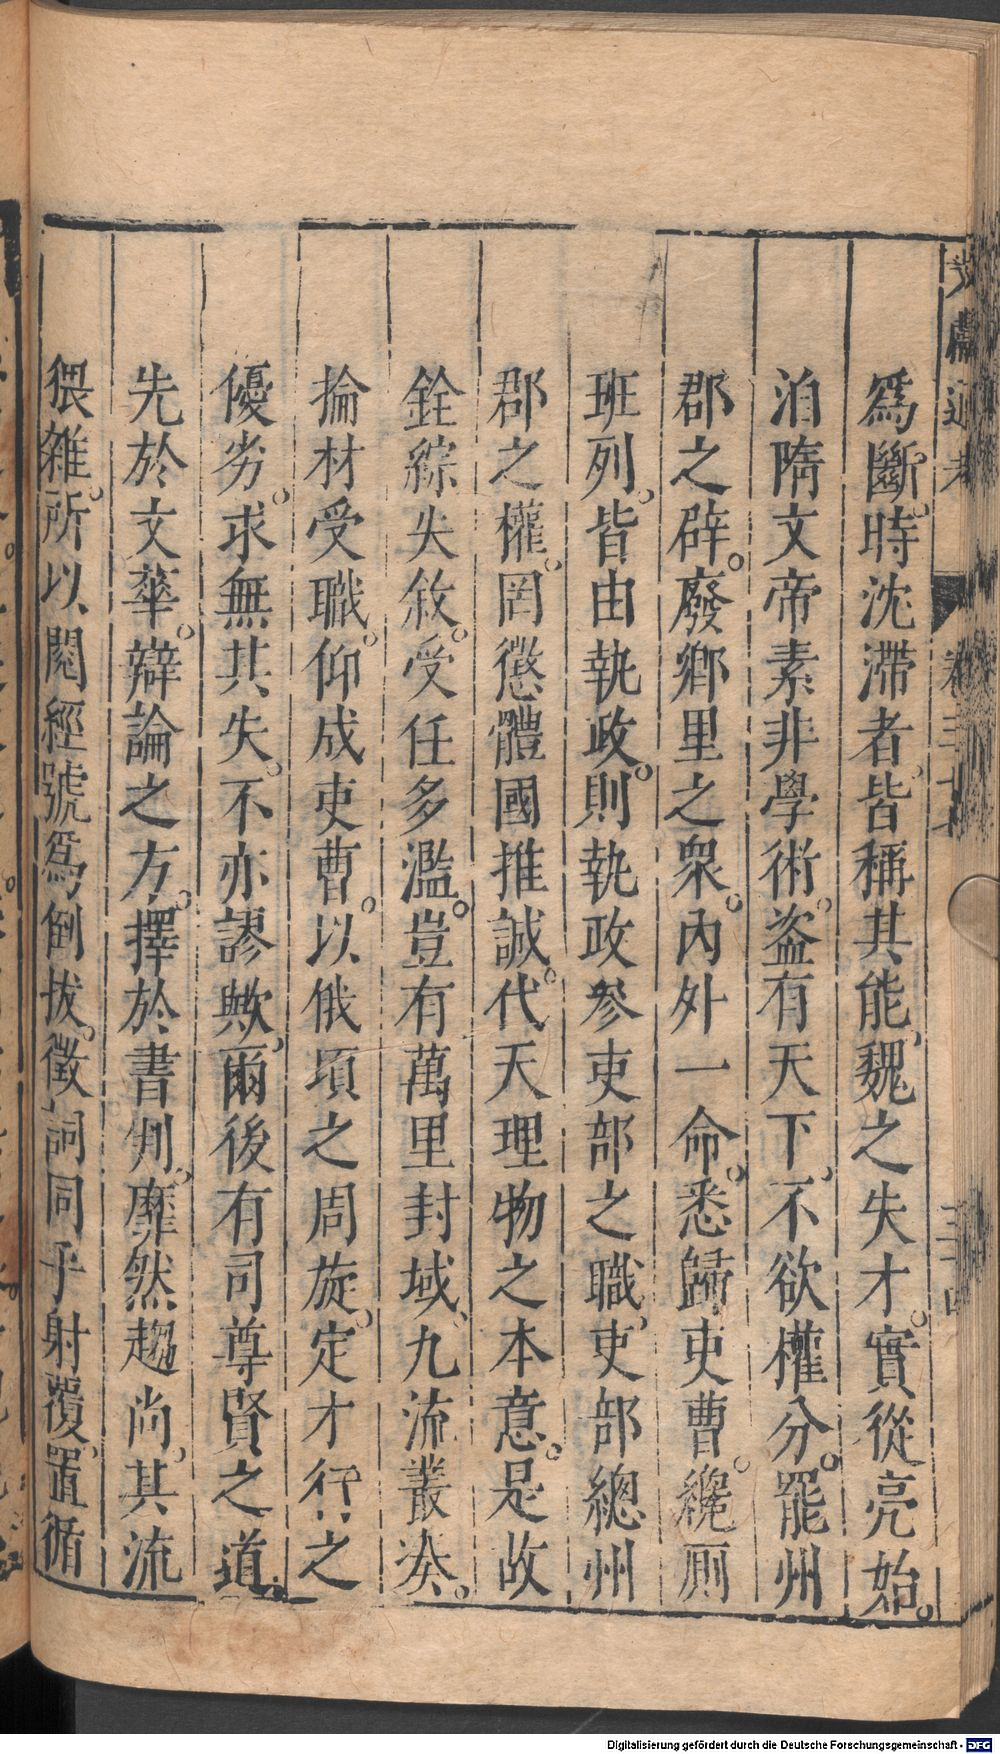 爲斷。時沈滯者。皆稱其能。魏之失才。實從亮始。
洎隋文帝素非學術。盗有天下。不欲權分。罷州
郡之辟。廢鄉里之衆。內外一命。悉歸吏曹。纔厠
班列。皆由執政。則執政參吏部之職。吏部總州
郡之權。罔懲體國推誠。代天理物之本意。是故
銓綜失敘。受任多濫。豈有萬里封域、九流叢湊。
掄材受職。仰成吏曹。以俄頃之周旋。定才行之
優劣。求無其失。不亦謬歟。爾後有司尊賢之道。
先於文華。辯論之方。擇於書判。靡然趨尚。其流
猥雜。所以閱經號爲倒拔。徵詞同乎射覆。置循
文獻通考
卷三十七
三十四
Digitalisierung gefördert durch die Deutsche Forschungsgemeinschaft - DFG